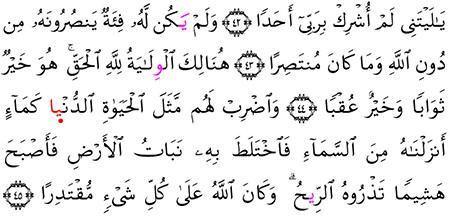 يَـٰلَيْتَنِى لَمْ أُشْرِكْ بِرَبِّىٓ أَحَدًا ﴿٤٢﴾ وَلَمْ يَكُن لَّهُۥ فِئَةٌ يَنصُرُونَهُۥ مِن
دُونِ ٱللَّهِ وَمَا كَانَ مُنتَصِرًا ﴿٤٣﴾ هُنَالِكَ ٱلْوِلَـٰيَةُ لِلَّهِ ٱلْحَقِّ ۚ هُوَ خَيْرٌ
ثَوَابًا وَخَيْرٌ عُقْبًا ﴿٤٤﴾ وَٱضْرِبْ لَهُم مَّثَلَ ٱلْحَيَوٰةِ ٱلدُّنْيَا كَمَآءٍ
أَنزَلْنَـٰهُ مِنَ ٱلسَّمَآءِ فَٱخْتَلَطَ بِهِۦ نَبَاتُ ٱلْأَرْضِ فَأَصْبَحَ
هَشِيمًا تَذْرُوهُ ٱلرِّيحُ ۗ وَكَانَ ٱللَّهُ عَلَىٰ كُلِّ شَىْءٍ مُّقْتَدِرًا ﴿٤٥﴾